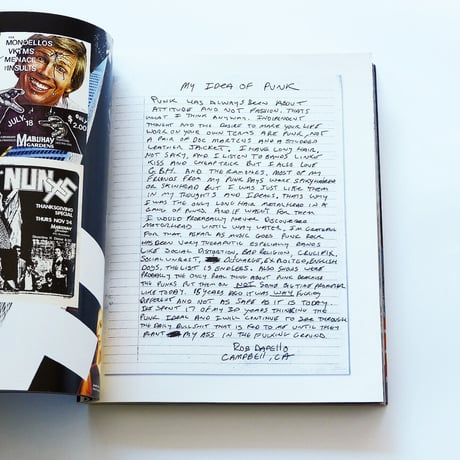 MONDELLOS
VKTMS
MENACE
INSULTS
JULY
18
$
2.00
MABUHAY
GARDENS
NUNS
THANKSGIVING
SPECIAL
THURS NOV. 24
MABUHAY
MY IDEA OF PUNK
PUNK HAS ALWAYS BEEN ABOUT
ATTITUDE AND NOT FASHION. THATS
WHAT I THINK ANYWAY. INDEPENDENT
THOUGHT AND THE DESIRE TO MAKE YOUR LIFE
WORK ON YOUR OWN TERMS ARE PUNK, NOT
A PAIR OF DOC MARTENS AND A STUDDED
LEATHER JACKET. I HAVE LONG HAIR,
NOT SPIKY, AND I LISTEN TO BANDS LIKE
KISS AND CHEAP TRICK BUT I ALSO LOVE
G.B.H. AND THE RAMONES. MOST OF MY
FRIENDS FROM MY PUNK DAYS WERE
OR SKINHEAD BUT I WAS JUST LIKE THEM
IN MY THOUGHTS AND IDEALS, THATS WHY
I WAS THE ONLY LONG HAIR METALHEAD IN A
GANG OF PUNKS. AND IF WASNT FOR THEM
I WOULD PROBABLY NEVER DISCOVERED
MOTORHEAD UNTIL WAY LATER, I'M GRATEFUL
FOR THAT. AS FAR AS MUSIC GOES PUNK ROCK
HAS BEEN VERY THERAPUTIC ESPECIALLY BANDS
LIKE SOCIAL DISTORTION, BAD RELIGION, CRUCIFIX,
SOCIAL UNREST, DISCHARGE, EXPLOITED, ENGLISH
DOGS, THE LIST IS ENDLESS. ALSO SHOWS WERE
PROBABLY THE ONLY REAL THING ABOUT PUNK BECAUSE
THE PUNKS PUT THEM ON NOT SOME BIG TIME PROMOTER
LIKE TODAY. 15 YEARS AGO IT WAS WAY FUCKING
DIFFERENT AND NOT AS SAFE AS IT IS TODAY.
IVE SPENT 17 OF MY 30 YEARS THINKING THE
PUNK IDEAL AND I WILL CONTINUE TO SEE THROUGH
THE DAILY BULLSHIT THAT IS FED TO ME UNTIL THEY
PLANT MY ASS IN THE FUCKING GROUND.
ROB DAPELLO
CAMPBELL, CA